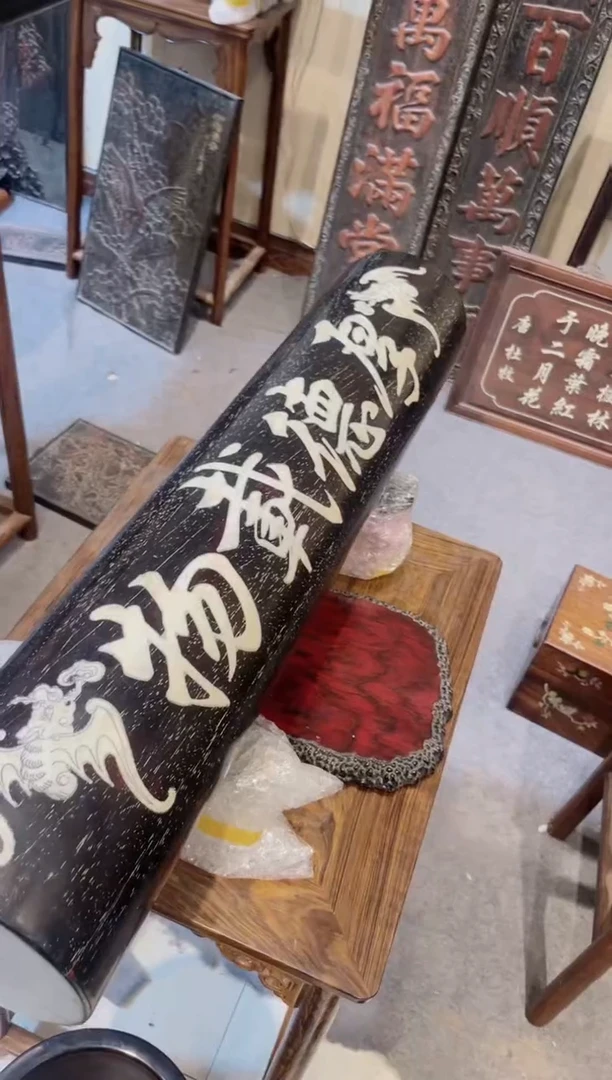 厚德載物
百順萬事
萬福滿堂
林
晚霜葉紅
于二月花
唐杜牧